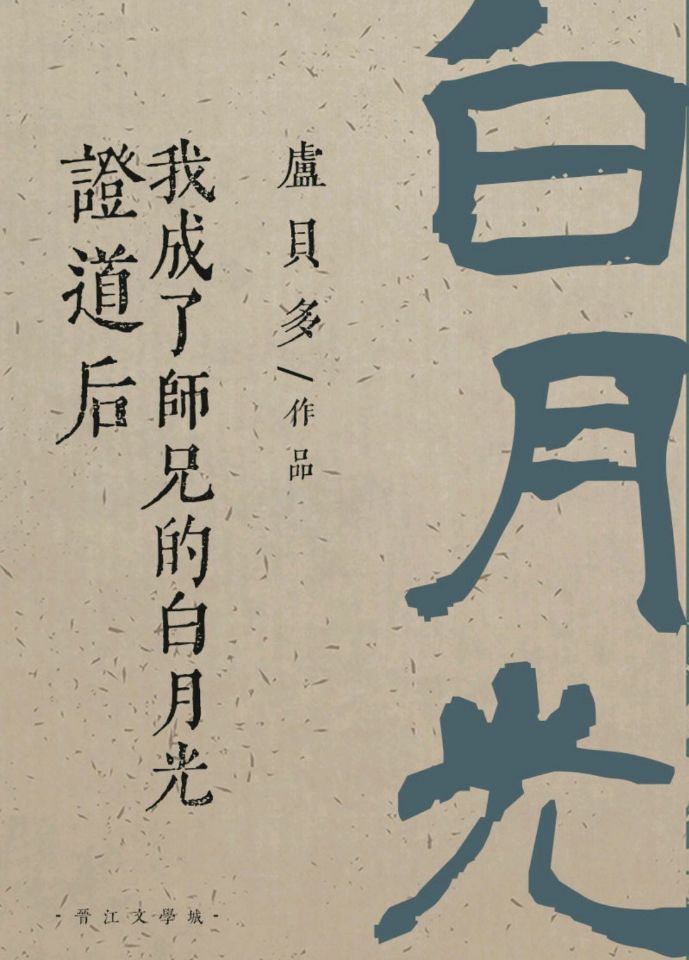 證道后
我成了師兄的白月光
盧貝多/作品
白月光
-晉江文學城-